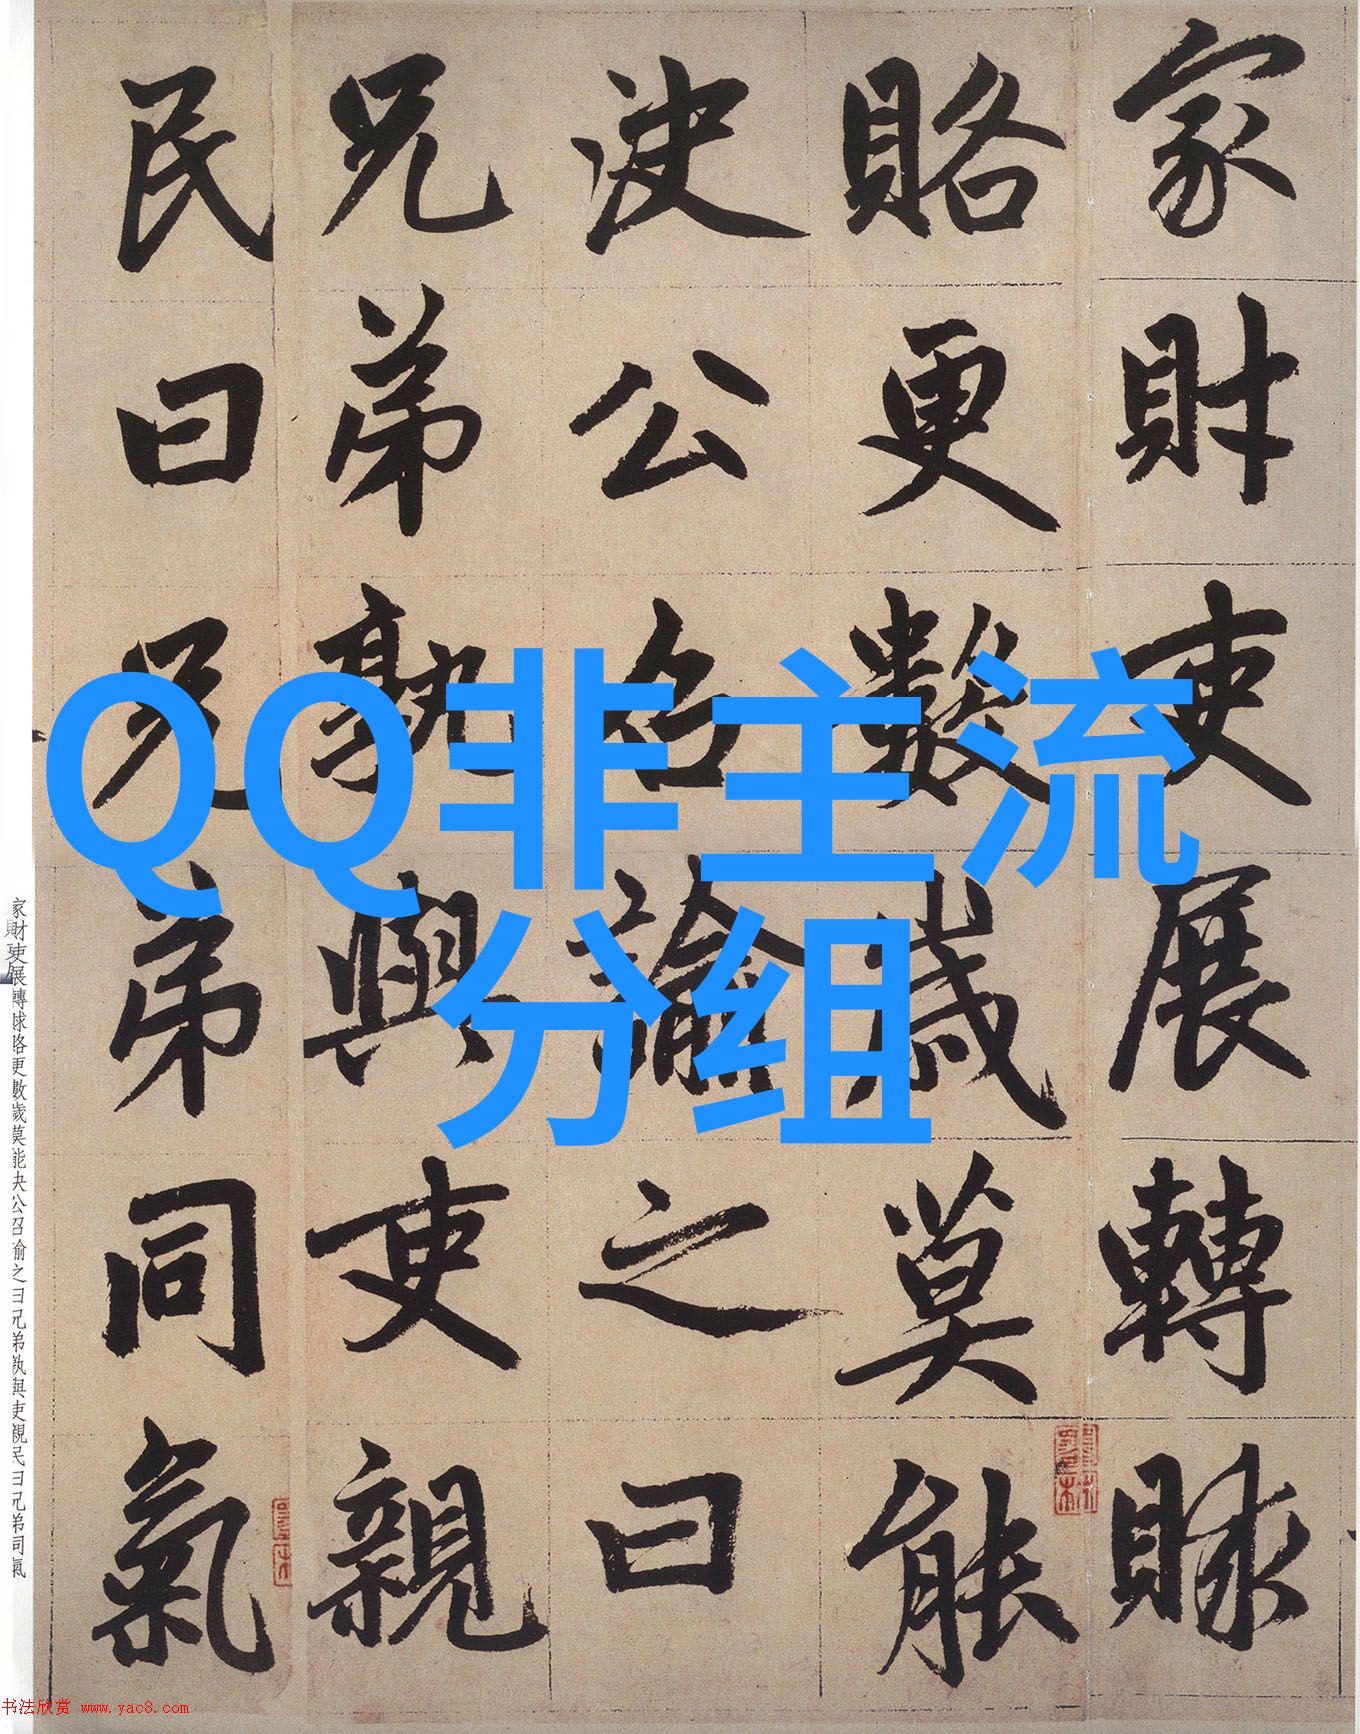 家財吏展轉賕
賂更數歲莫能
決公召諭之曰
兄弟孰與吏親
民曰兄弟同氣
QQ非主流
分组
家財吏展轉賕賂更數歲莫能決公召諭之曰兄弟孰與吏親民曰兄弟同氣
书法欣赏 www.yac8.com